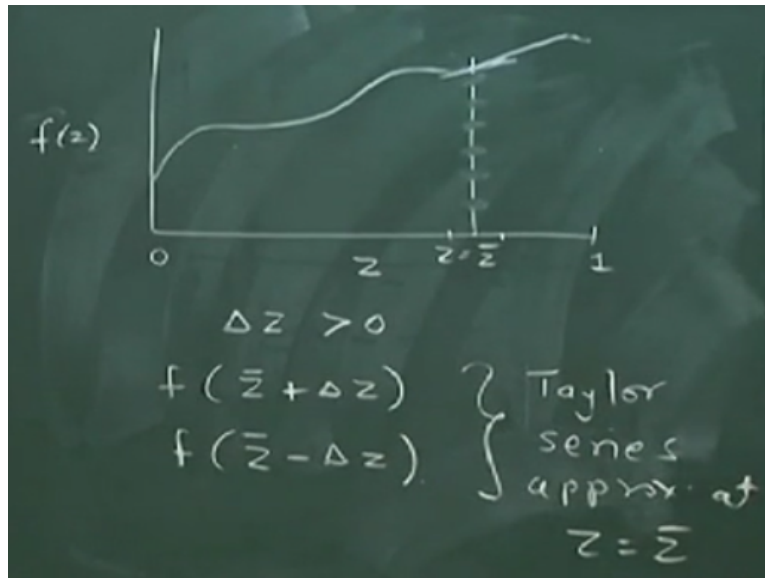 f(z)
0 z z = z̄ 1
Δz > 0
f(z̄ + Δz) } Taylor
f(z̄ - Δz) series
approx. at
z = z̄